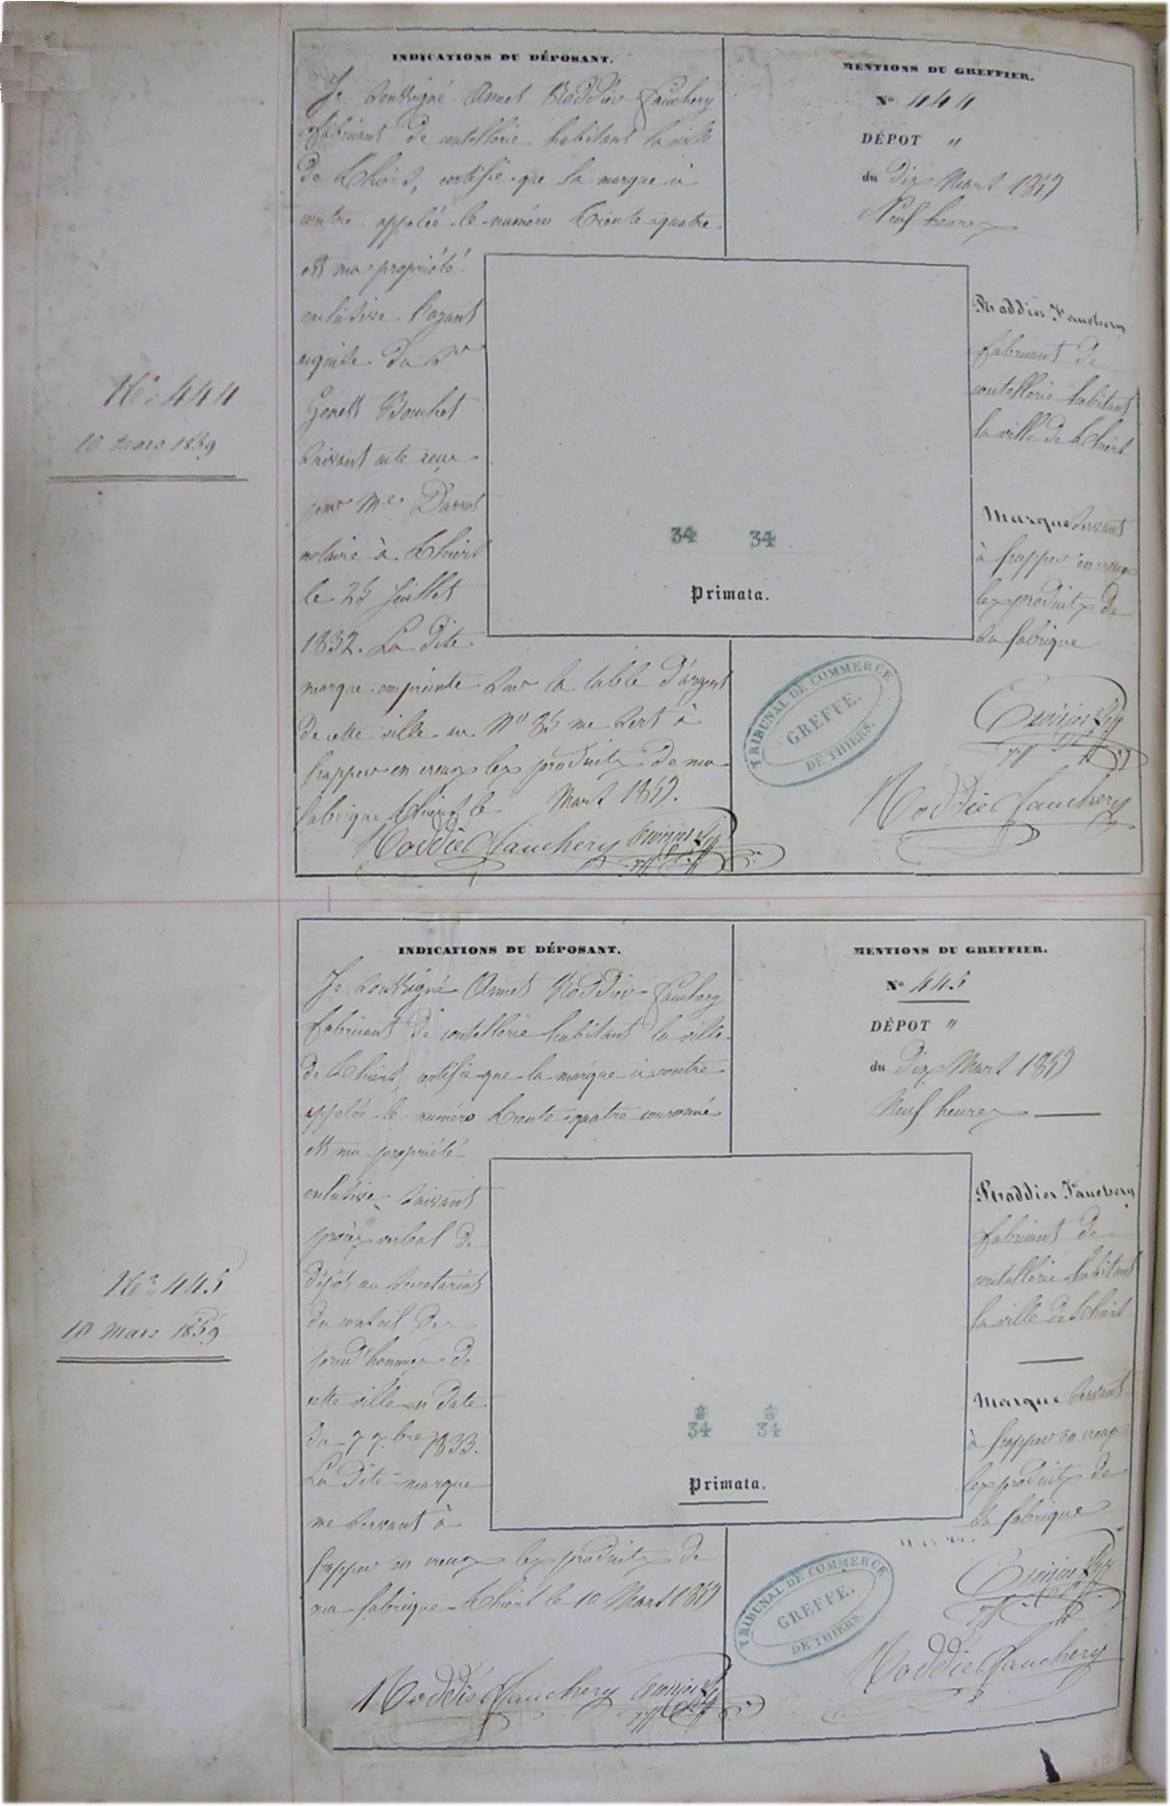 N° 444
10 mars 1859
INDICATIONS DU DÉPOSANT.
Je soussigné Annet Roddier Fauchery
fabricant de coutellerie habitant la ville
de Thiers, certifie que la marque ci
contre appelée le numéro trente quatre
est ma propriété
exclusive l'ayant
acquise du Sr
Genest Bouchet
suivant acte reçu
par Me Darrot
notaire à Thiers
le 25 juillet
1832. La dite
marque empreinte sur la table d'argent
de cette ville au N° 35 me sert à
frapper en creux les produits de ma
fabrique Thiers le Mars 1859.
Roddié Fauchery
MENTIONS DU GREFFIER.
N° 444
DÉPOT "
du dix Mars 1859
Neuf heures
34 34
Primata.
Roddier Fauchery
fabricant de
coutellerie habitant
la ville de Thiers
Marque servant
à frapper en creux
les produits de
sa fabrique
TRIBUNAL DE COMMERCE
GREFFE.
DE THIERS.
Roddié Fauchery
N° 445
10 mars 1859
INDICATIONS DU DÉPOSANT.
Je soussigné Annet Roddier Fauchery
fabricant de coutellerie habitant la ville
de Thiers, certifie que la marque ci contre
appelée le numéro trente quatre couronné
est ma propriété
exclusive suivant
procès verbal de
dépôt au secretariat
du conseil des
prud'hommes de
cette ville en date
du 7 7bre 1833.
La dite marque
me servant à
frapper en creux les produits de
ma fabrique Thiers le 10 Mars 1859
Roddié Fauchery
MENTIONS DU GREFFIER.
N° 445
DÉPOT "
du dix Mars 1859
Neuf heures
34 34
Primata.
Roddier Fauchery
fabricant de
coutellerie habitant
la ville de Thiers
Marque servant
à frapper en creux
les produits de
sa fabrique
TRIBUNAL DE COMMERCE
GREFFE.
DE THIERS.
Roddié Fauchery